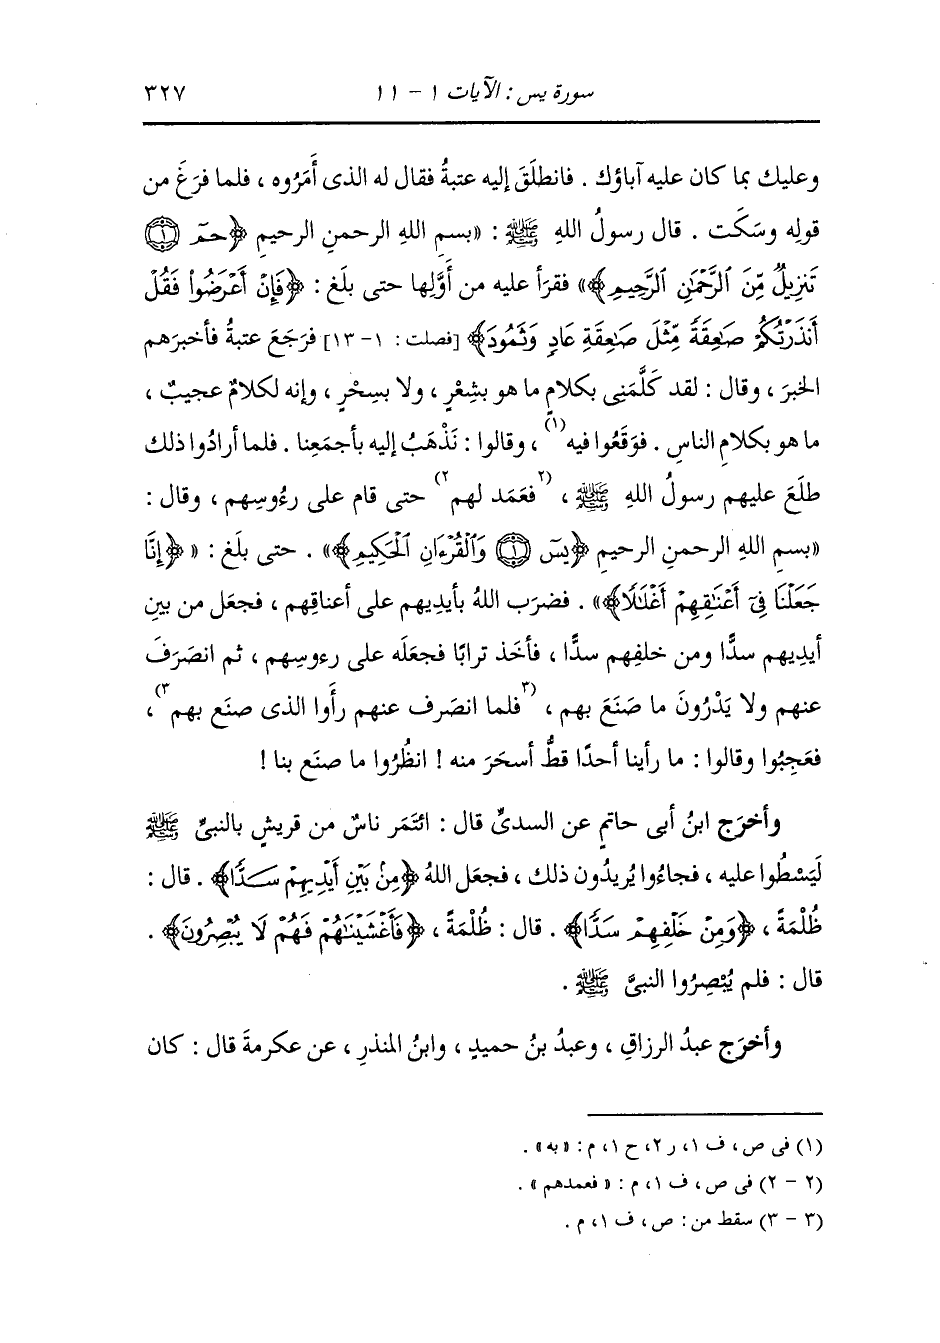 سورة يس : الآيات ١ - ١١ ٣٢٧
وعليك بما كان عليه آباؤك . فانطلَقَ إليه عتبةُ فقال له الذى أَمَرُوه ، فلما فرَغَ من
قولِه وسَكَت . قال رسولُ اللهِ ﷺ : «بسمِ اللهِ الرحمنِ الرحيمِ ﴿حمٓ ۝١
تَنزِيلٌ مِّنَ ٱلرَّحْمَٰنِ ٱلرَّحِيمِ﴾» فقرَأ عليه من أَوَّلِها حتى بلَغ : ﴿فَإِنْ أَعْرَضُوا۟ فَقُلْ
أَنذَرْتُكُمْ صَٰعِقَةً مِّثْلَ صَٰعِقَةِ عَادٍ وَثَمُودَ﴾ [فصلت : ١-١٣] فرَجَعَ عتبةُ فأخبرَهم
الخبرَ ، وقال : لقد كَلَّمَنِى بكلامٍ ما هو بشِعْرٍ ، ولا بسِحْرٍ ، وإنه لكلامٌ عجيبٌ ،
ما هو بكلامِ الناسِ . فوَقَعُوا فيه(١) ، وقالوا : نَذْهَبُ إليه بأجمَعِنا . فلما أرادُوا ذلك
طلَعَ عليهم رسولُ اللهِ ﷺ ، (٢فعَمَد لهم٢) حتى قام على رءُوسِهم ، وقال :
«بسمِ اللهِ الرحمنِ الرحيمِ ﴿يسٓ ۝١ وَٱلْقُرْءَانِ ٱلْحَكِيمِ﴾» . حتى بلَغ : « ﴿إِنَّا
جَعَلْنَا فِىٓ أَعْنَٰقِهِمْ أَغْلَٰلًا﴾» . فضرَب اللهُ بأيدِيهم على أعناقِهم ، فجعَل من بينِ
أيدِيهم سدًّا ومن خلفِهم سدًّا ، فأخَذ ترابًا فجعَله على رءوسِهم ، ثم انصَرَفَ
عنهم ولا يَدْرُونَ ما صَنَعَ بهم ، (٣فلما انصَرف عنهم رأَوا الذى صنَع بهم٣)،
فعَجِبُوا وقالوا : ما رأينا أحدًا قطُّ أسحَرَ منه ! انظُرُوا ما صنَع بنا !
وأخرَج ابنُ أبى حاتمٍ عن السدىِّ قال : ائتَمَر ناسٌ من قريشٍ بالنبىِّ ﷺ
لَيَسْطُوا عليه ، فجاءُوا يُريدُون ذلك ، فجعَل اللهُ ﴿مِنۢ بَيْنِ أَيْدِيهِمْ سَدًّا﴾ . قال :
ظُلْمَةً ، ﴿وَمِنْ خَلْفِهِمْ سَدًّا﴾ . قال : ظُلْمَةً ، ﴿فَأَغْشَيْنَٰهُمْ فَهُمْ لَا يُبْصِرُونَ﴾ .
قال : فلم يُبْصِرُوا النبىَّ ﷺ .
وأخرَج عبدُ الرزاقِ ، وعبدُ بنُ حميدٍ ، وابنُ المنذرِ ، عن عكرمةَ قال : كان
(١) فى ص، ف ١، ر ٢، ح ١، م : «به» .
(٢ - ٢) فى ص، ف ١، م : «فعمدهم» .
(٣ - ٣) سقط من : ص، ف ١، م .